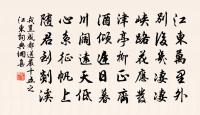 江東萬里外
別後幾悽悽
峽路花應發
津亭柳正齊
酒傾遲日暮
川闊遠天低
心繫征帆上
隨君到剡溪
戎昱成都送嚴十五之
江東詞典網集